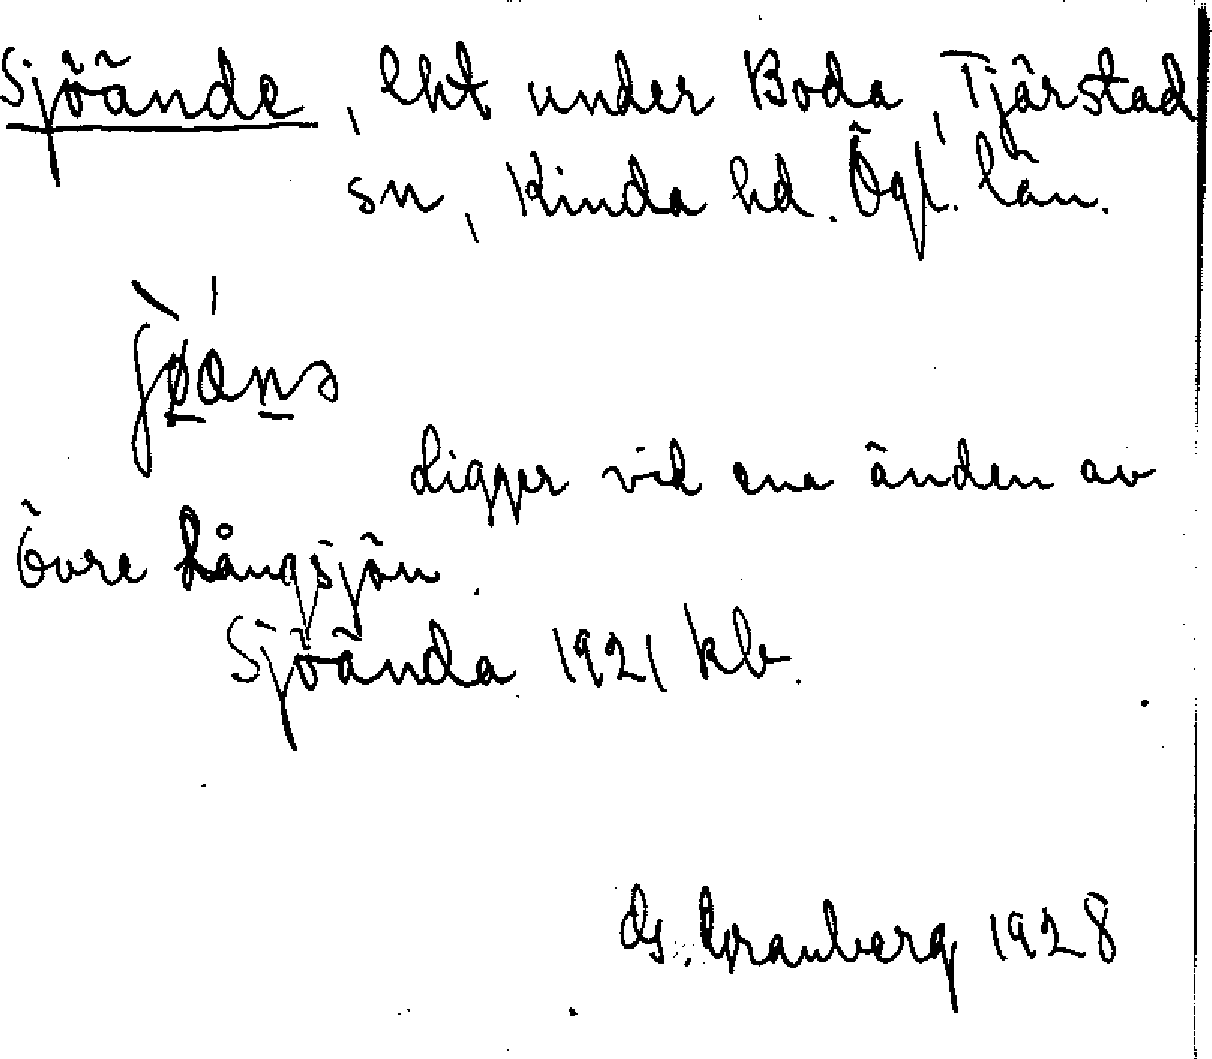 Sjöände, lht under Boda, Tjärstad
sn, Kinda hd. Ögl. län.
Ligger vid ena änden av
övre Långsjön.
Sjöända 1921 kb.
G. Granberg 1928